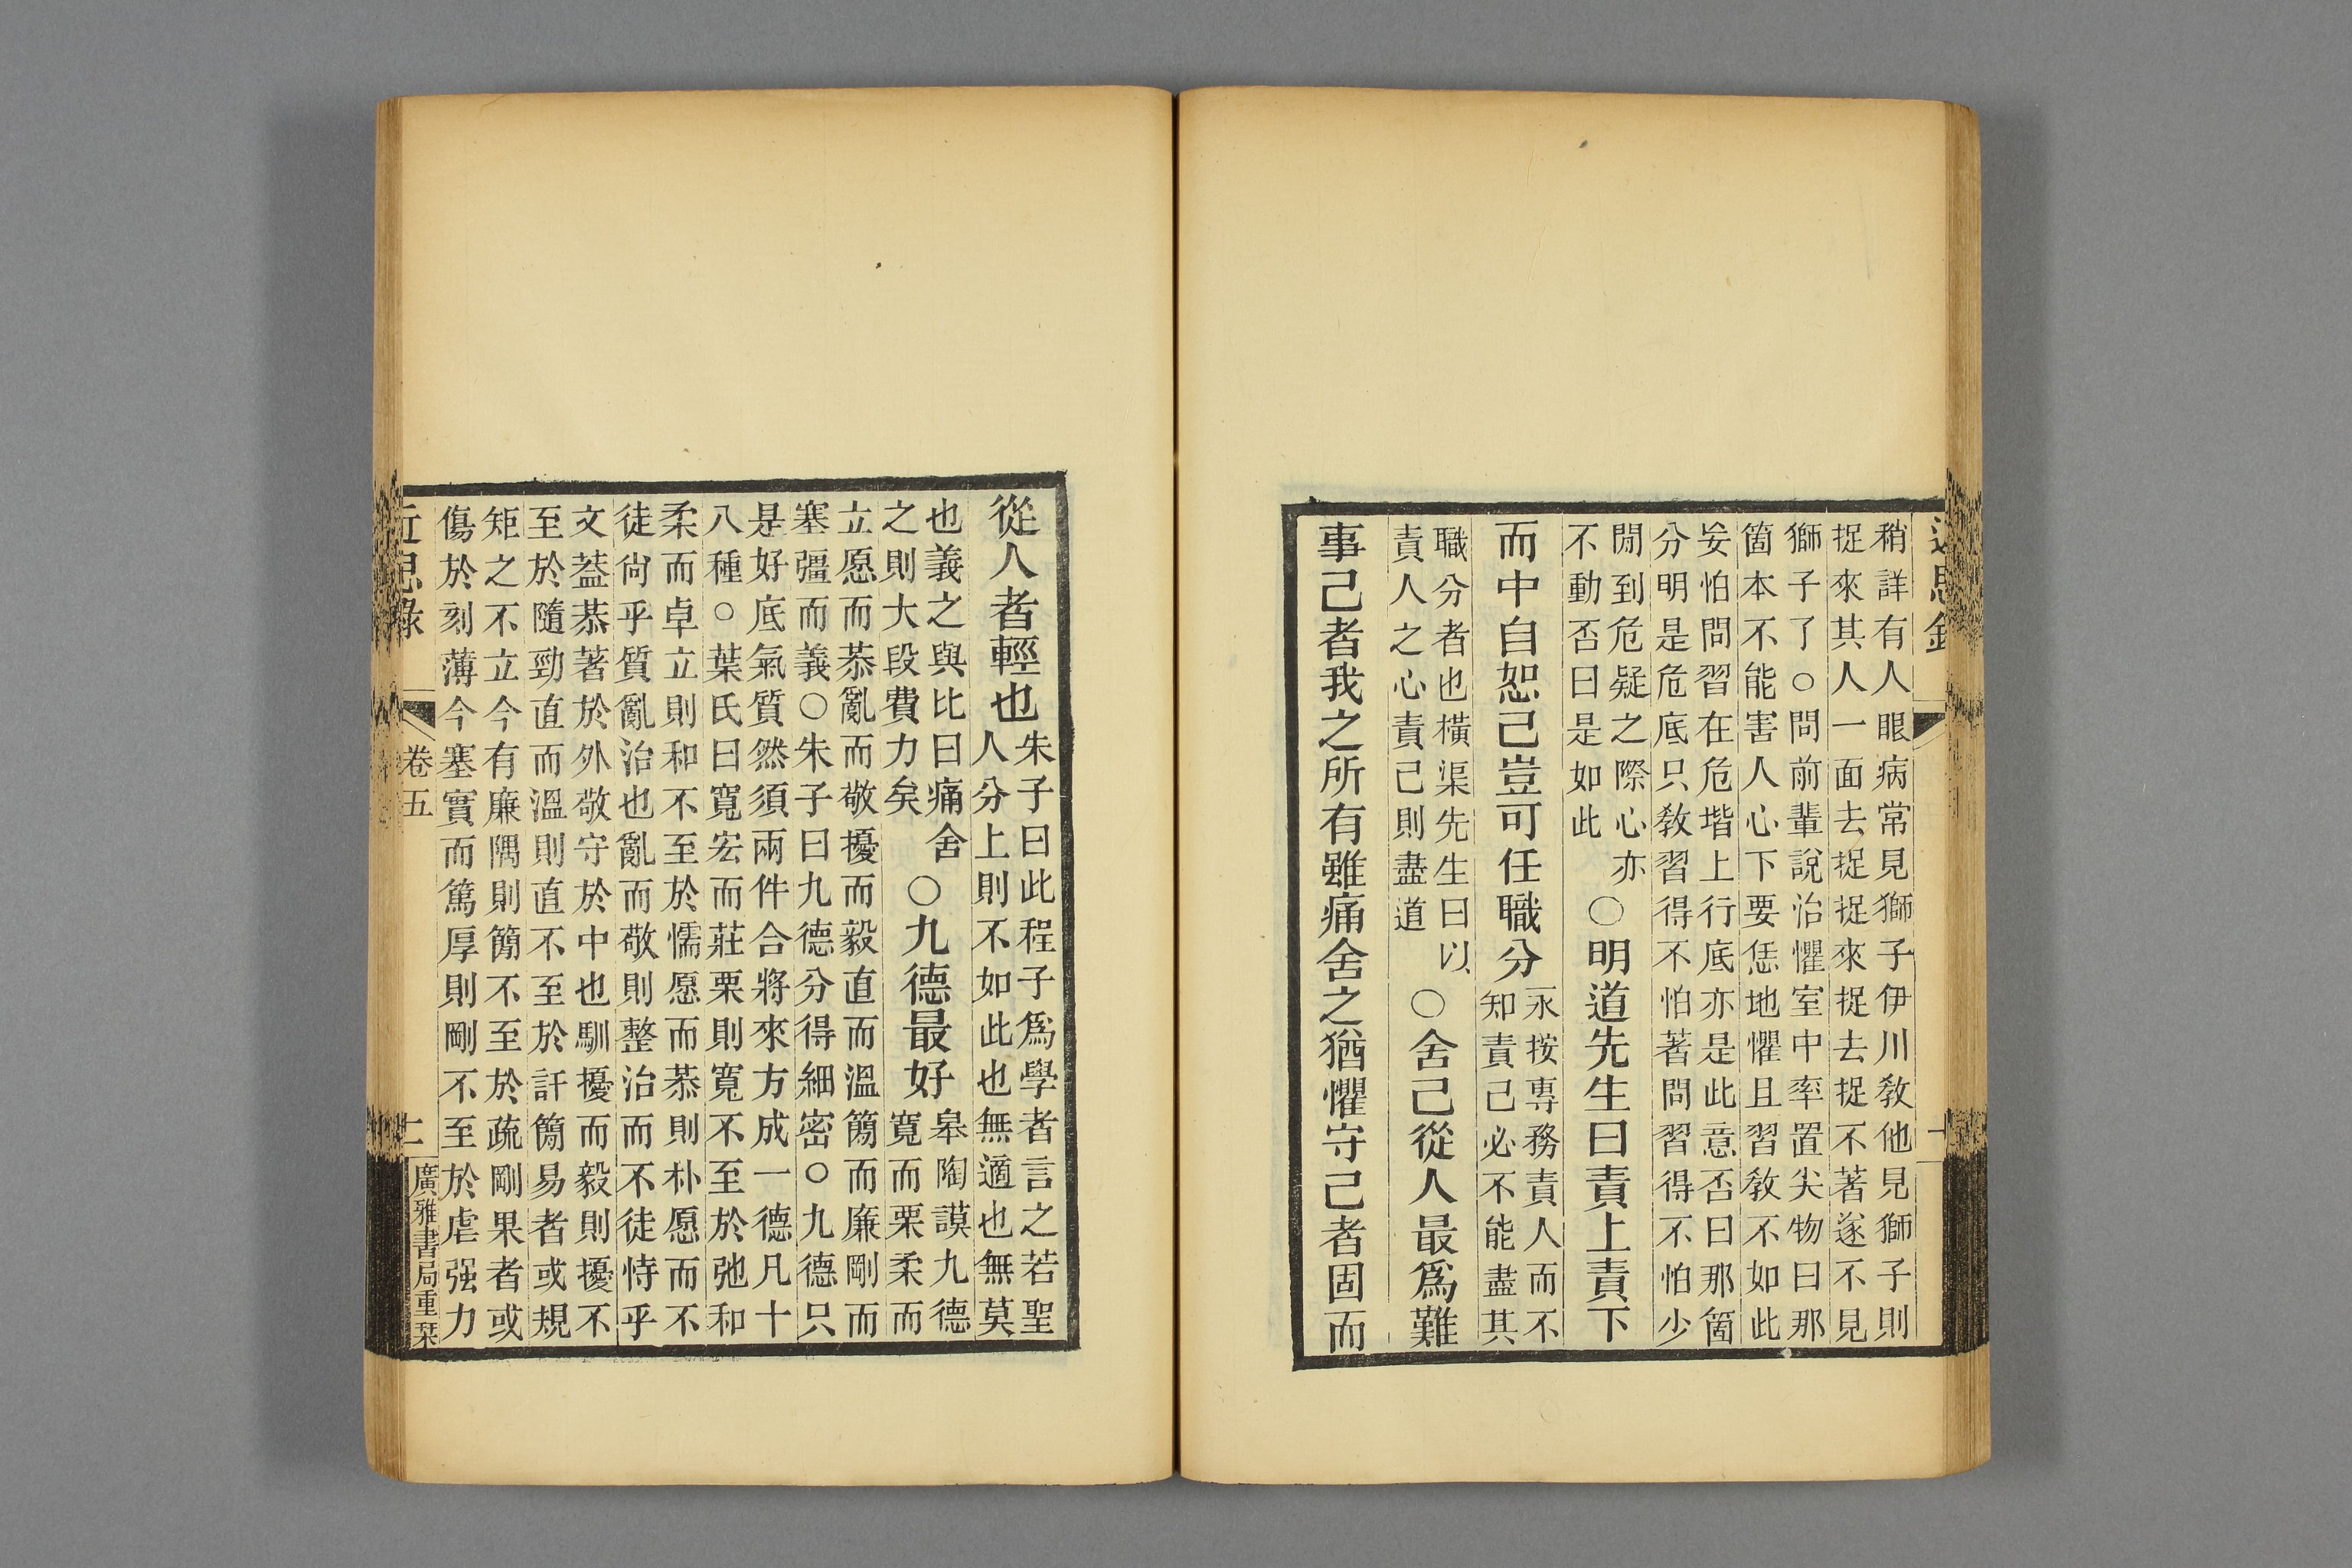 近思錄
稍詳有人眼病常見獅子伊川教他見獅子則
捉來其人一面去捉捉來捉去捉不著遂不見
獅子了○問前輩說治懼室中率置尖物曰那
箇本不能害人心下要恁地懼且習教不如此
妄怕問習在危堦上行底亦是此意否曰那箇
分明是危底只教習得不怕著問習得不怕少
閒到危疑之際心亦
不動否曰是如此
○明道先生曰責上責下
而中自恕己豈可任職分
永按專務責人而不
知責己必不能盡其
職分者也橫渠先生曰以
責人之心責己則盡道
○舍己從人最爲難
事己者我之所有雖痛舍之猶懼守己者固而
從人者輕也
朱子曰此程子爲學者言之若聖
人分上則不如此也無適也無莫
也義之與比曰痛舍
之則大段費力矣
○九德最好
皋陶謨九德
寬而栗柔而
立愿而恭亂而敬擾而毅直而溫簡而廉剛而
塞彊而義○朱子曰九德分得細密○九德只
是好底氣質然須兩件合將來方成一德凡十
八種○葉氏曰寬宏而莊栗則寬不至於弛和
柔而卓立則和不至於懦愿而恭則朴愿而不
徒尙乎質亂治也亂而敬則整治而不徒恃乎
文葢恭著於外敬守於中也馴擾而毅則擾不
至於隨勁直而溫則直不至於訐簡易者或規
矩之不立今有廉隅則簡不至於疏剛果者或
傷於刻薄今塞實而篤厚則剛不至於虐强力
近思錄
卷五
廣雅書局重栞